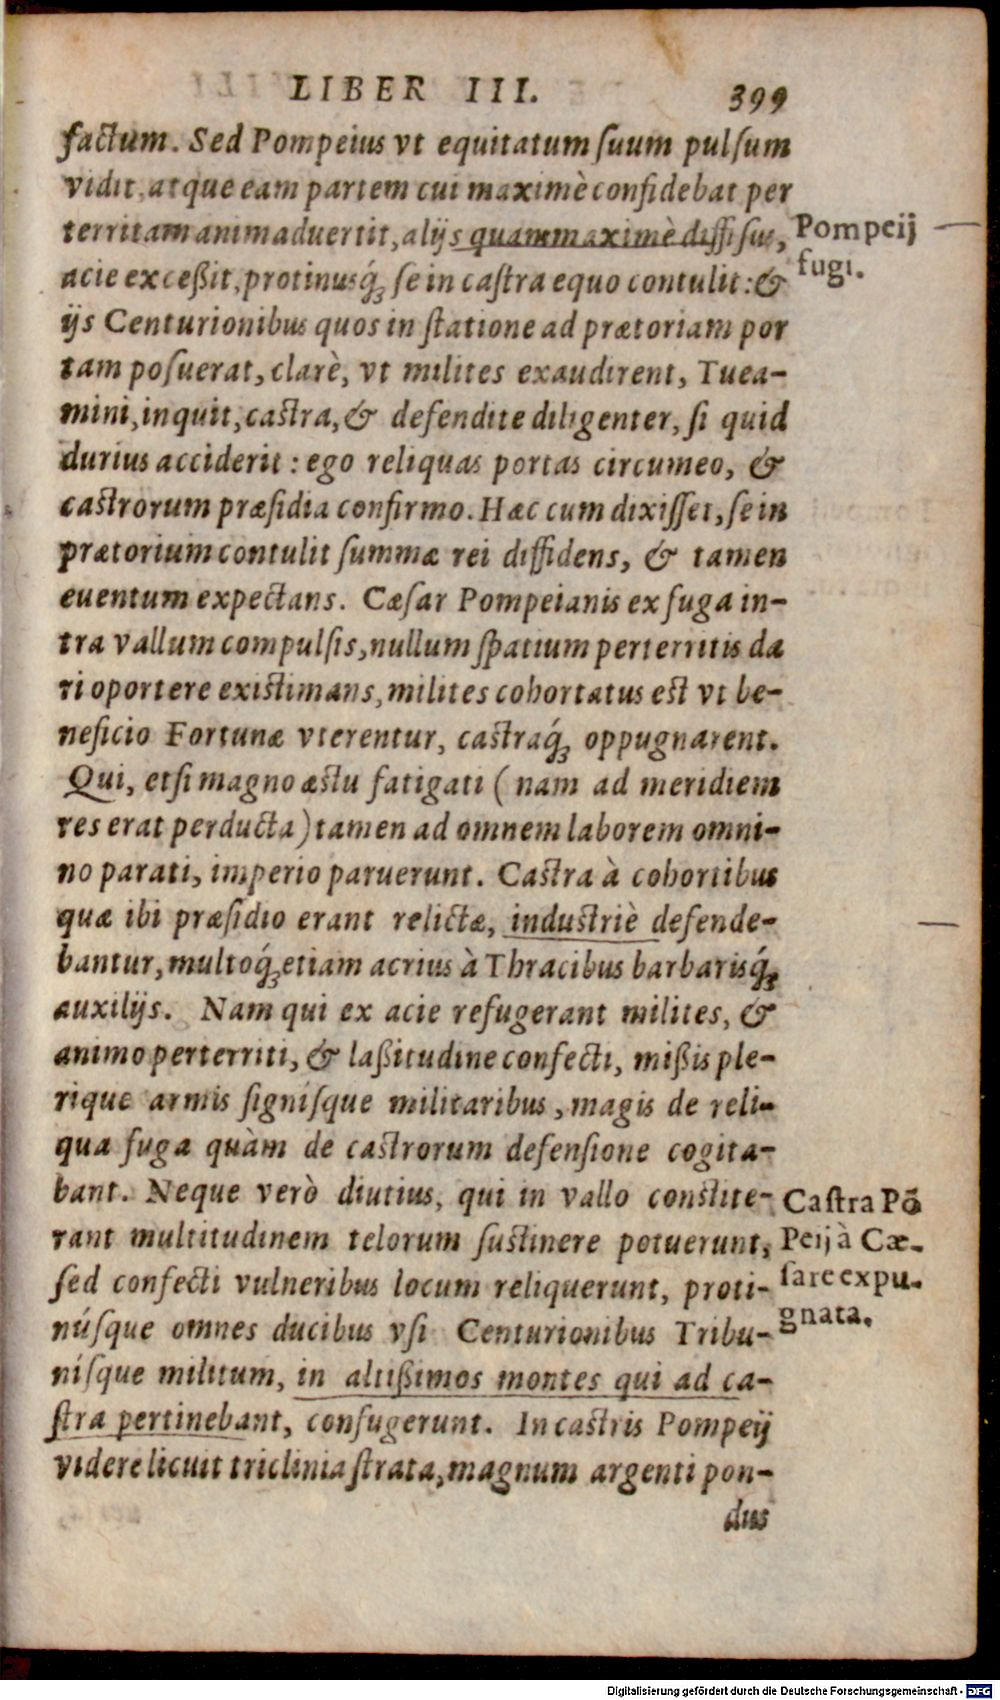 LIBER III. 399
factum. Sed Pompeius vt equitatum ſuum pulſum
vidit, atque eam partem cui maximè confidebat per
territam animaduertit, alijs quammaximè diffiſus,
Pompeij
fugi.
acie exceßit, protinusq́; ſe in caſtra equo contulit: &
ijs Centurionibus quos in ſtatione ad prætoriam por
tam poſuerat, clarè, vt milites exaudirent, Tuea-
mini, inquit, caſtra, & defendite diligenter, ſi quid
durius acciderit: ego reliquas portas circumeo, &
caſtrorum præſidia confirmo. Hæc cum dixiſſet, ſe in
prætorium contulit ſummæ rei diffidens, & tamen
euentum expectans. Cæſar Pompeianis ex fuga in-
tra vallum compulſis, nullum ſpatium perterritis da
ri oportere exiſtimans, milites cohortatus eſt vt be-
neficio Fortunæ vterentur, caſtraq́; oppugnarent.
Qui, etſi magno æſtu fatigati (nam ad meridiem
res erat perducta) tamen ad omnem laborem omni-
no parati, imperio paruerunt. Caſtra à cohortibus
quæ ibi præſidio erant relictæ, induſtriè defende-
bantur, multoq́; etiam acrius à Thracibus barbarisq́;
auxilijs. Nam qui ex acie refugerant milites, &
animo perterriti, & laßitudine confecti, mißis ple-
rique armis ſigniſque militaribus, magis de reli-
qua fuga quàm de caſtrorum defenſione cogita-
bant. Neque verò diutius, qui in vallo conſtite-
rant multitudinem telorum ſuſtinere potuerunt,
ſed confecti vulneribus locum reliquerunt, proti-
núſque omnes ducibus vſi Centurionibus Tribu-
Caſtra Pō
Peij à Cæ-
ſare expu-
gnata.
níſque militum, in altißimos montes qui ad ca-
ſtra pertinebant, confugerunt. In caſtris Pompeij
videre licuit triclinia ſtrata, magnum argenti pon-
dus
Digitalisierung gefördert durch die Deutsche Forschungsgemeinschaft - DFG